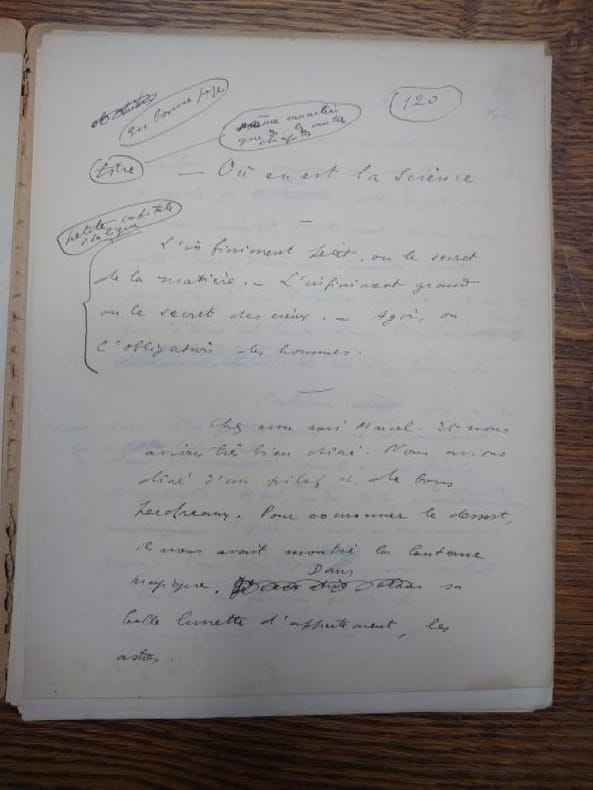 en bonne page
120
même caractère
que les autres
chapitres
titre
— Où en est la science
petites capitales
italique
L'infiniment petit, ou le secret
de la matière. — L'infiniment grand
ou le secret des cieux. — Agir, ou
l'obligation des hommes.
Chez mon ami Marcel. Il nous
avions très bien dîné. Nous avions
dîné d'un pilaf et de bons
perdreaux. Pour couronner le dessert,
il nous avait montré la lanterne
magique. Dans sa
belle lunette d'appartement, les
astres.